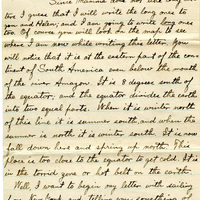 Since Mamma does not like long let-
ters I guess that I will write the long one to
you and Helen, and I am going to write long ones
too. Of course you will look on the map to see
where I am now while writing this letter. You
will notice that it is at the eastern part of the con-
tinent of South America even below the mouth
of the river Amazon. It is 8 degrees south of
the equator, and the equator divides the earth
into two equal parts. When it is winter north
of this line it is summer south, and when the
summer is north it is winter south. It is now
fall down here and spring up north. This
place is too close to the equator to get cold. It is
in the torrid zone or hot belt on the earth.
Well, I want to begin my letter with sailing
from New York and telling you something of